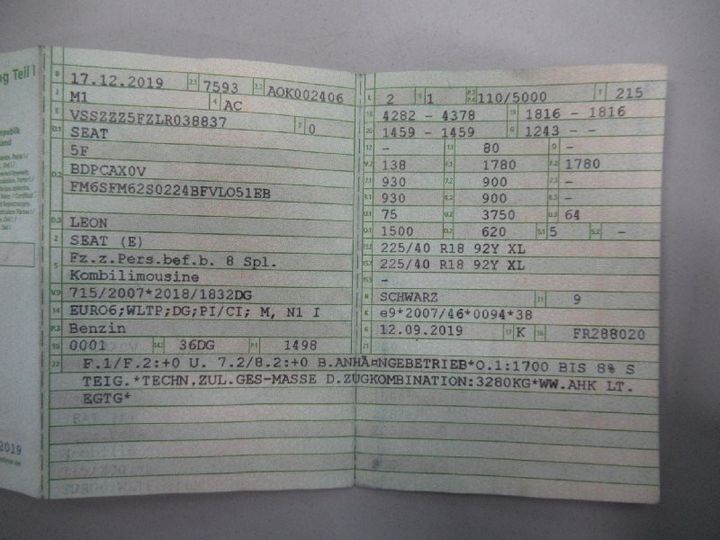 ng Teil I
B 17.12.2019 2.1 7593 2.2 AOK002406
J M1 4 AC
E VSSZZZ5FZLR038837 3 0
D.1 SEAT
5F
D.2 BDPCAX0V
FM6SFM62S0224BFVLO51EB
D.3 LEON
2 SEAT (E)
5 Fz.z.Pers.bef.b. 8 Spl.
Kombilimousine
V.9 715/2007*2018/1832DG
14 EURO6;WLTP;DG;PI/CI; M, N1 I
P.3 Benzin
10 0001 14.1 36DG P.1 1498
L 2 9 1 P.2 P.4 110/5000 T 215
18 4282 - 4378 19 1816 - 1816
20 1459 - 1459 G 1243 - -
12 - 13 80 Q -
V.7 138 F.1 1780 F.2 1780
7.1 930 7.2 900 7.3 -
8.1 930 8.2 900 8.3 -
U.1 75 U.2 3750 U.3 64
O.1 1500 O.2 620 S.1 5 S.2 -
15.1 225/40 R18 92Y XL
15.2 225/40 R18 92Y XL
15.3 -
R SCHWARZ 11 9
K e9*2007/46*0094*38
6 12.09.2019 17 K 16 FR288020
21
22 F.1/F.2:+0 U. 7.2/8.2:+0 B.ANHA¤NGEBETRIEB*O.1:1700 BIS 8% S
TEIG.*TECHN.ZUL.GES-MASSE D.ZUGKOMBINATION:3280KG*WW.AHK LT.
EGTG*
2019